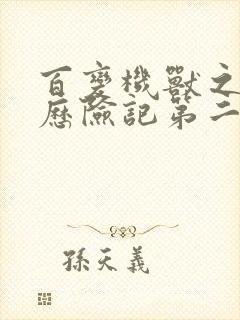 百變機獸之
歷險記第二
孫天義